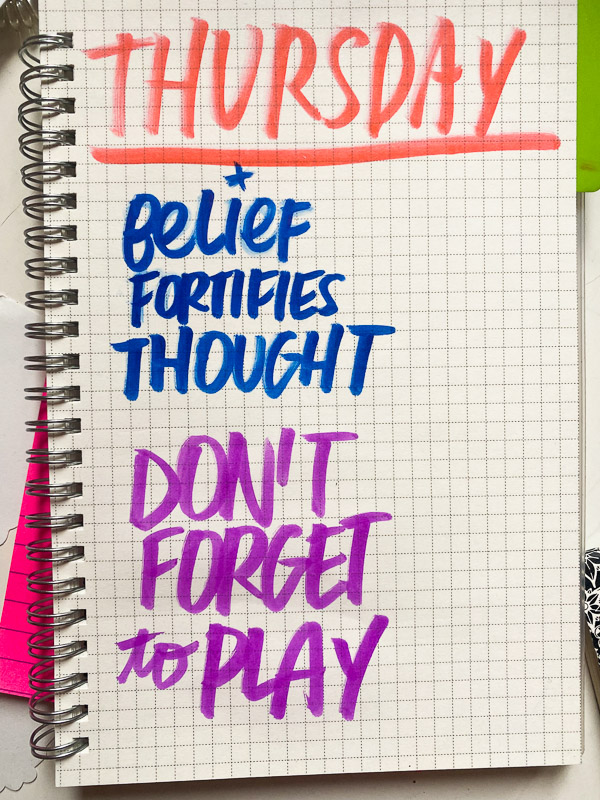 THURSDAY
BeLiEF
FORTIFIES
THOUGHT
DON'T
FORGET
to PLAY